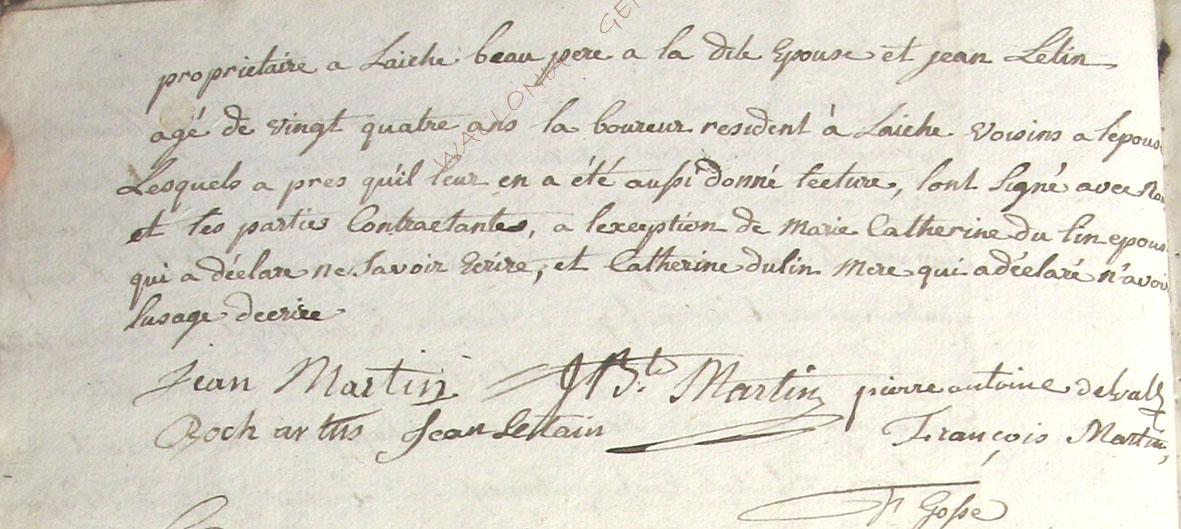 proprietaire a Laiche beau pere a la dite Epouse et jean Letin
agé de vingt quatre ans la boureur resident à Laiche voisins a lepouse
Lesquels a pres quil leur en a été aussi donné lecture, lont Signé avec nou
et les parties Contractantes, a lexception de Marie Catherine du lin epous
qui a déclare ne Savoir Ecrire, et Catherine dulin Mere qui a déclaré n'avoir
lusage decrire
Jean Martin JBte Martin pierre antoine delvall
Roch artus Jean Lentain François Martin,
Gosse
WALLONIA GEN